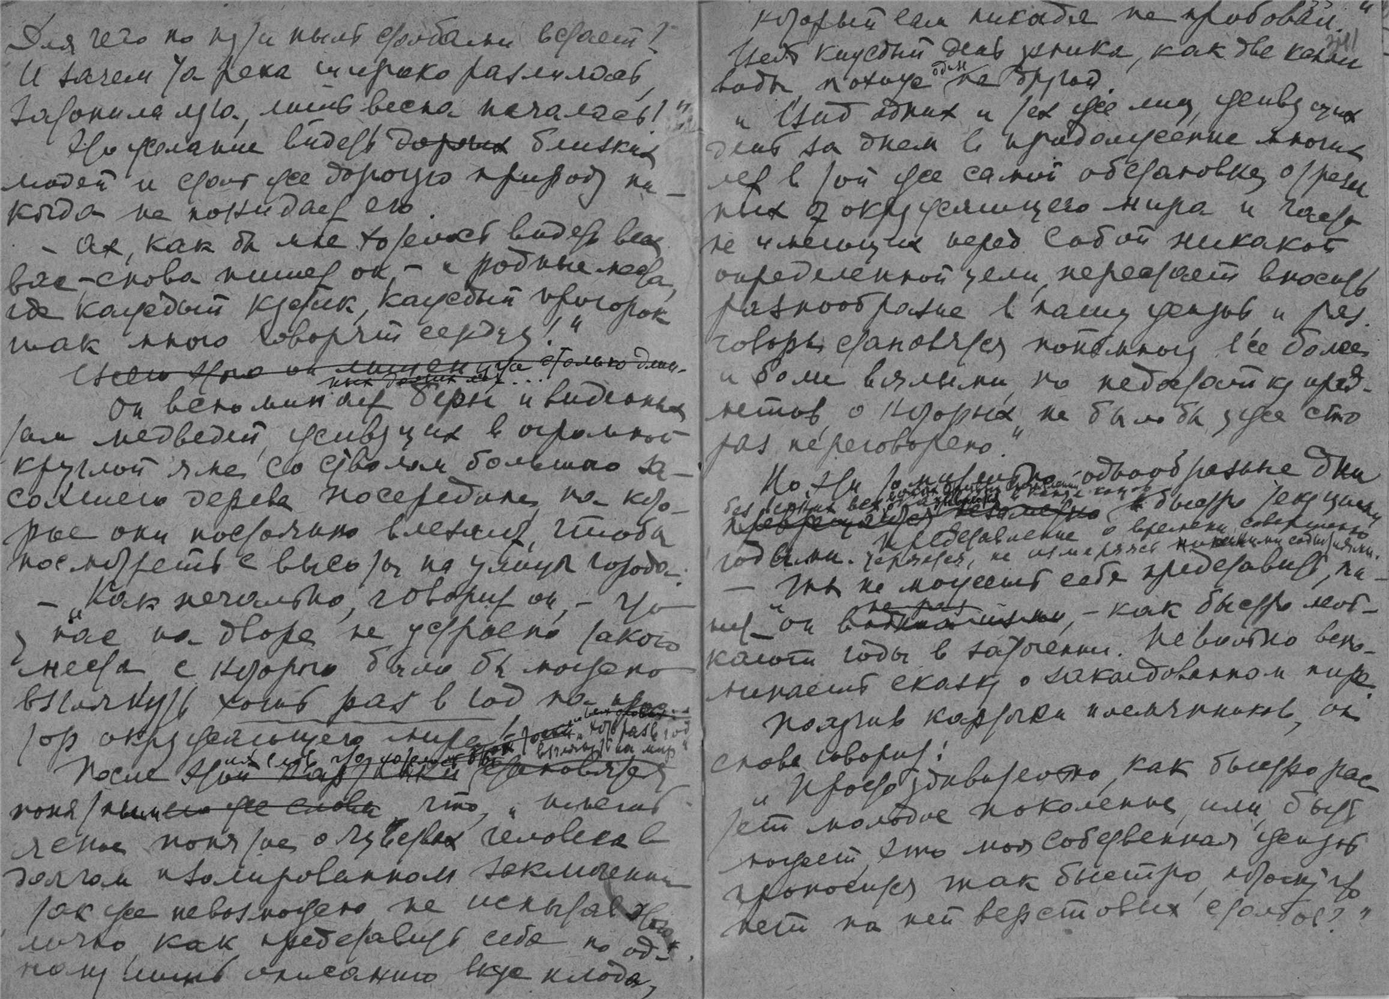 Для чего по пути пыль столбами встает?
И зачем та река широко разлилась,
Затопила луга, лишь весна началась?"
Но желание видеть близких
людей и столь же дорогую природу ни-
когда не покидает его.
- Ах, как бы мне хотелось видеть всех
вас - снова пишет он, - и родные места,
где каждый кустик, каждый пригорок
так много говорят сердцу!"
он столько длин-
Он вспоминает Берн и виденных
там медведей, живущих в огромной
круглой яме, со стволом большого за-
сохшего дерева посередине, на кото-
рое они постоянно влезают, чтобы
посмотреть с высоты на улицы города.
- "Как печально, говорит он, - что
у нас на дворе не устроено такого
места с которого было бы можно
взглянуть хоть раз в год на прос-
тор окружающего мира!"
После
понятным что, "иметь
ясное понятие о чувствах человека в
долгом изолированном заключении
так же невозможно, не испытав этого
лично, как представить себе по од-
ному лишь описанию вкус плода,
который сам никогда не пробовал."
Здесь каждый день узника, как две капли
воды, похож один на другой.
"Вид одних и тех же лиц, живущих
день за днем в продолжение многих
лет в той же самой обстановке, отрезан-
ных от окружающего мира и часто
не имеющих перед собой никакой
определенной цели, перестает вносить
разнообразие в нашу жизнь и раз-
говоры становятся понемногу все более
и более вялыми, по недостатку пред-
метов, о которых не было бы уже сто
раз переговорено."
Но эти однообразные дни
быстро текущими
годами. Представление о времени совершенно
теряется, не измеряясь никакими событиями.
- "Ты не можешь себе представить, пи-
шет он, - как быстро мель-
кают годы в заточении. Невольно вспо-
минаешь сказку о заколдованном пире.
Получив карточки племянников, он
снова говорит:
"Просто удивительно, как быстро рас-
тет молодое поколение, или, быть
может, это моя собственная жизнь
проносится так быстро, потому что
нет на ней верстовых столбов?"